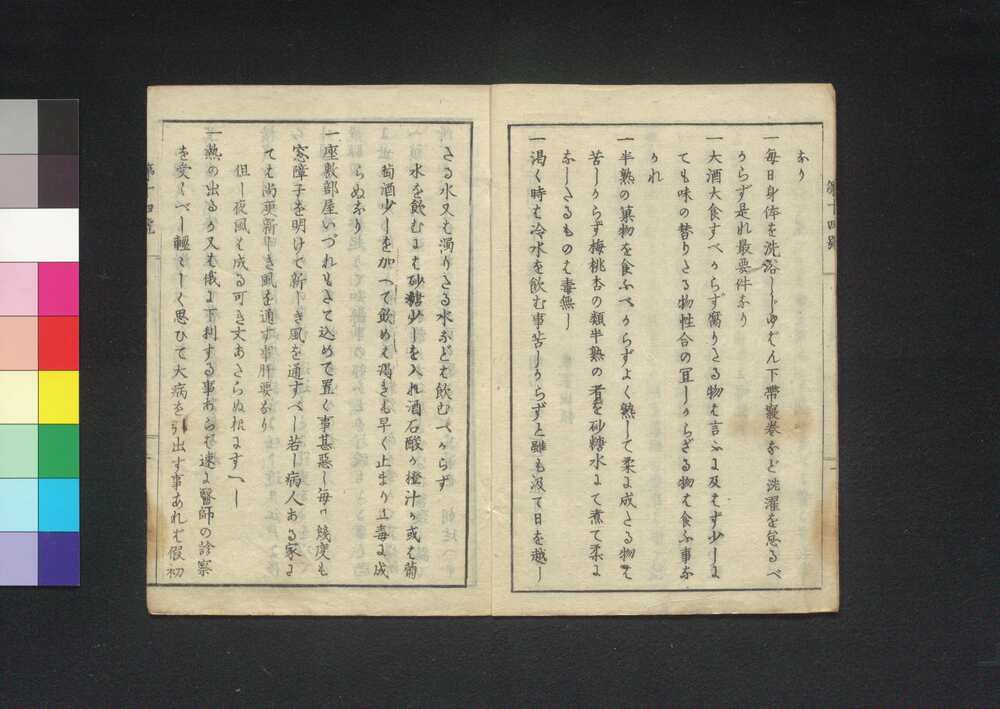 第十四號
なり
一毎日身体を洗浴しじゆばん下帯寝巻など洗濯を怠るべ
からず是れ最要件なり
一大酒大食すべからず腐りたる物は言ふに及ばず少しに
ても味の替りたる物性合の宜しからざる物は食ふ事な
かれ
一半熟の菓物を食ふべからずよく熟して柔に成たる物は
苦しからず梅桃杏の類半熟の者を砂糖水にて煮て柔に
なしたるものは毒無し
一渇く時は冷水を飲む事苦しからずと雖も汲て日を越し
たる水又は濁りたる水などは飲むべからず
水を飲むには砂糖少しを入れ酒石酸か橙汁か或は葡
萄酒少しを加へて飲めば渇きも早く止まり且毒に成
らぬなり
一座敷部屋いづれもたて込めて置く事甚悪し毎日幾度も
窓障子を明けて新しき風を通すべし若し病人ある家に
ては尚更新しき風を通す事肝要なり
但し夜風は成る可き丈あたらぬ様にすべし
一熱の出るか又は俄に下利する事あらば速に醫師の診察
を受くべし輕々しく思ひて大病を引出す事あれば假初
第十四號